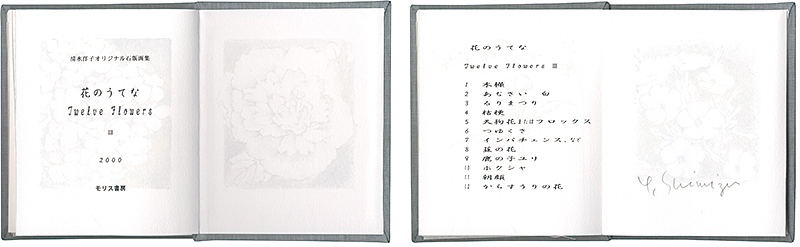 清水洋子オリジナル石版画集
花のうてな
Twelve Flowers
III
2000
モリス書房
花のうてな
Twelve Flowers III
1 木槿
2 あぢさい 白
3 るりまつり
4 桔梗
5 天狗花またはフロックス
6 つゆくさ
7 インパチェンス、など
8 韮の花
9 鹿の子ユリ
10 ホクシャ
11 朝顔
12 からすうりの花
Y. Shimizu